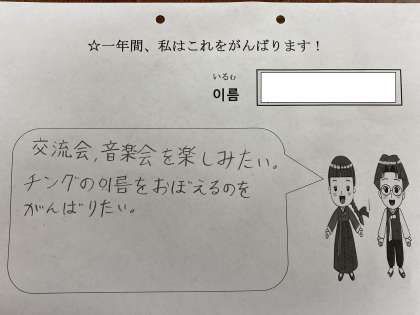 ☆一年間、私はこれをがんばります！
いるむ
이름
交流会,音楽会を楽しみたい。
チングの이름をおぼえるのを
がんばりたい。